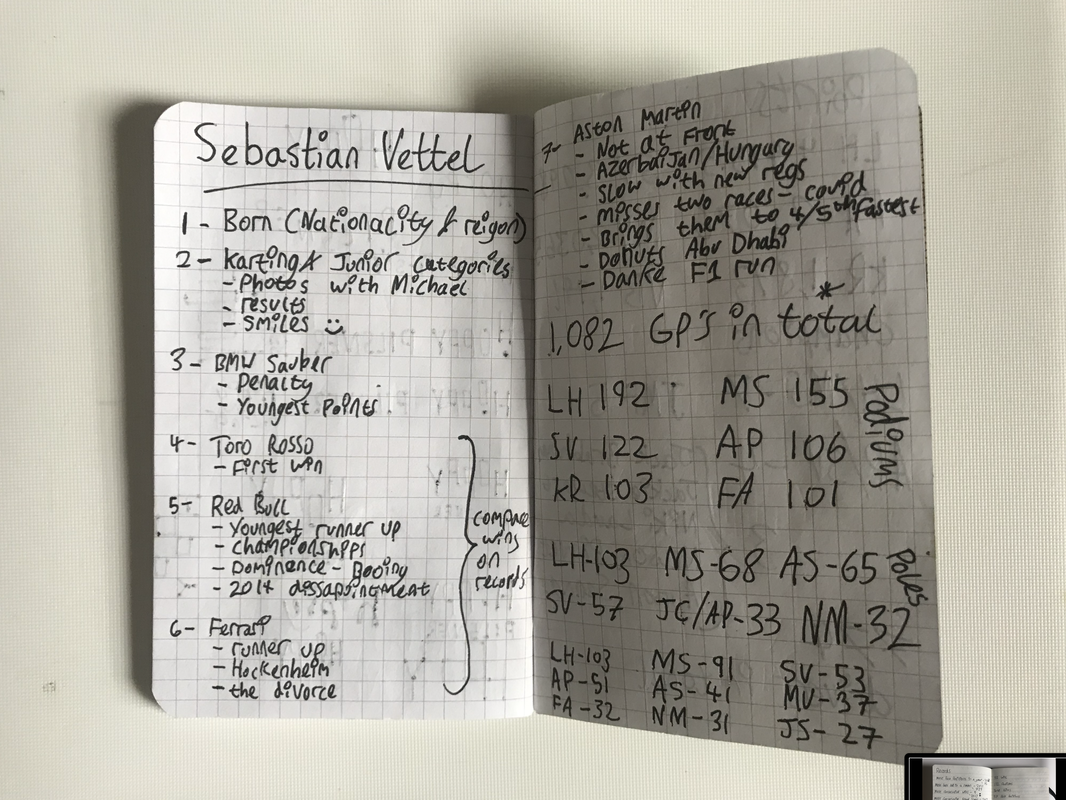 Sebastian Vettel
1 - Born (Nationacity & reigon)
2 - Karting & Junior categories
- Photos with Michael
- results
- smiles :)
3 - BMW Sauber
- Penalty
- Youngest points
4 - Toro Rosso
- First win
5 - Red Bull
- Youngest runner up
- Championships
- Dominence - Booing
- 2014 dissapointment
6 - Ferrari
- runner up
- Hockenheim
- the divorce
compare
wins
on
records
7 - Aston Martin
- Not at Front
- Azerbaijan/Hungary
- Slow with new regs
- misses two races - covid
- Brings them to 4/5th fastest
- Donuts Abu Dhabi
- Danke F1 run
1,082 GP's in total*
LH 192 MS 155
SV 122 AP 106
KR 103 FA 101
Podiums
LH-103 MS-68 AS-65
SV-57 JC/AP-33 NM-32
Poles
LH-103 MS-91 SV-53
AP-51 AS-41 MV-37
FA-32 NM-31 JS-27